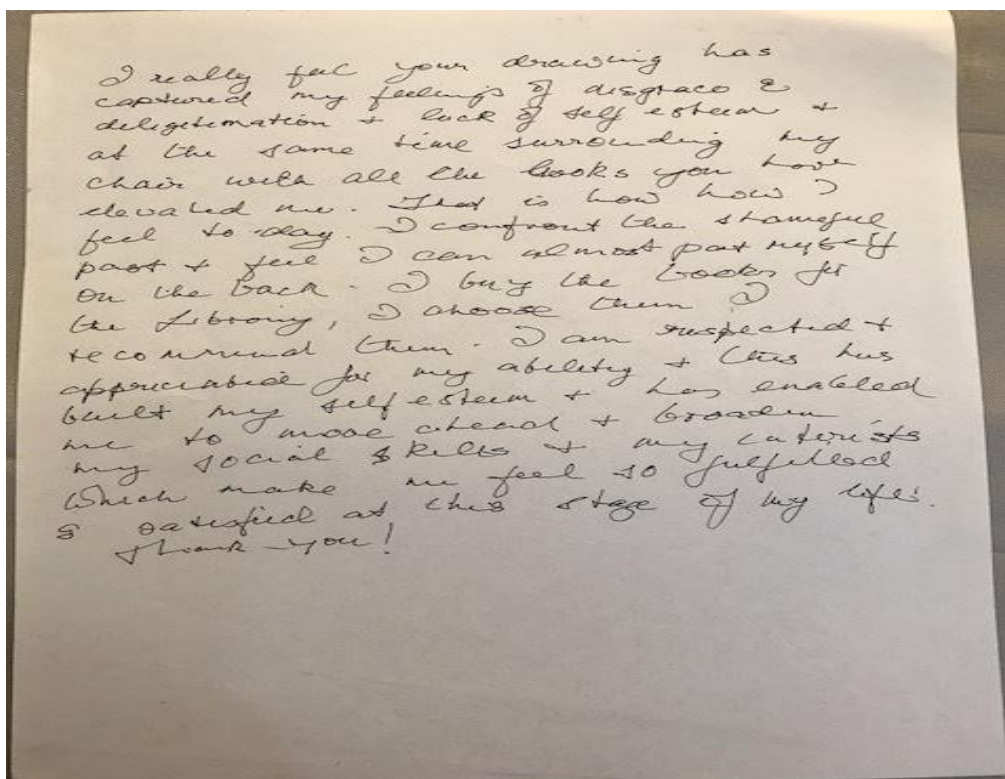 I really feel your drawing has
captured my feelings of disgrace &
deligetimation + lack of self esteem +
at the same time surrounding my
chair with all the books you have
elevated me. That is how how I
feel to-day. I confront the shameful
past + feel I can almost pat myself
on the back. I buy the books for
the Library, I choose them I
recommend them. I am respected +
appreciated for my ability + this has
built my self esteem + has enabled
me to move ahead + broaden
my social skills + my interists
which make me feel so fulfilled
& satisfied at this stage of my life.
Thank-you!